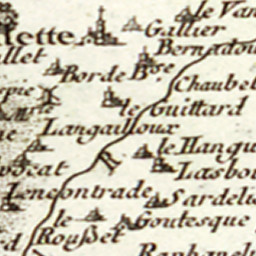 le Van
Gallier
lette
Bernadou
llet
Borde Bse
Chaubel
le Guittard
Langailloux
le Hangu
Lasbou
Lencontrade
Sardeli
le
Goutesque
Rousset
Raphanel